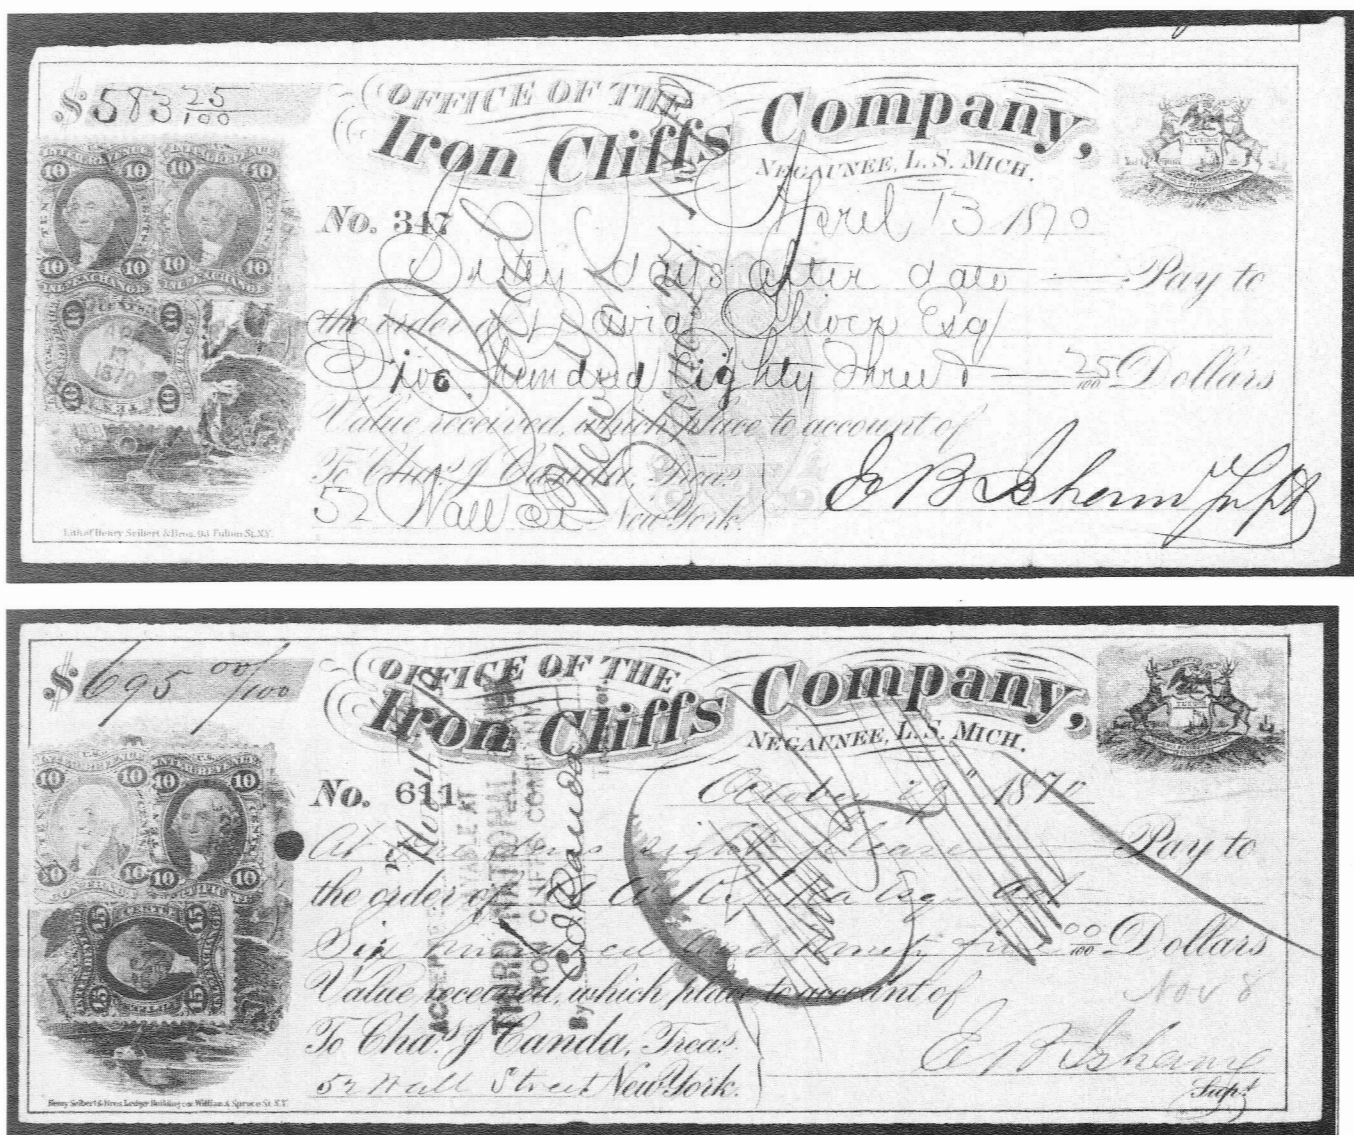 $583 25/100
OFFICE OF THE
Iron Cliffs Company,
NEGAUNEE, L. S. MICH.
No. 347
April 13 1870
Sixty days after date Pay to
the order of David Oliver Esq
Five Hundred Eighty Three 25/100 Dollars
Value received, which place to account of
To Chas. J Canda, Treas.
52 Wall St New York.
E B Isham Supt
Lith of Henry Seibert & Bros. 93 Fulton St. N.Y.
$695 00/100
OFFICE OF THE
Iron Cliffs Company,
NEGAUNEE, L. S. MICH.
No. 611
October 1870
At sight please Pay to
the order of Esq
Six hundred and ninety five 00/100 Dollars
Value received, which place to account of
Nov 8
To Chas. J Canda, Treas.
52 Wall Street New York.
E B Isham
Supt
Henry Seibert & Bros. Ledger Building cor William & Spruce St. N.Y.
ACCEPTED
PAYABLE AT
THIRD NATIONAL
IRON CLIFFS COMPANY
By C J Canda